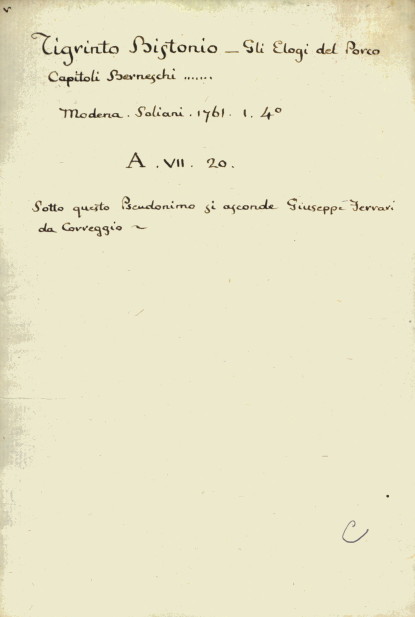 Tigrinto Bistonio — Gli Elogi del Porco
Capitoli Berneschi .......
Modena . Soliani . 1761 . 1. 4º
A . VII . 20 .
Sotto questo Pseudonimo si asconde Giuseppe Ferrari
da Correggio ~
C